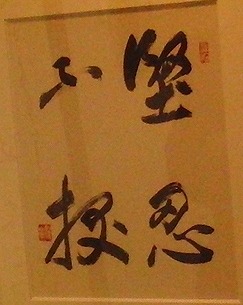 堅忍
不拔